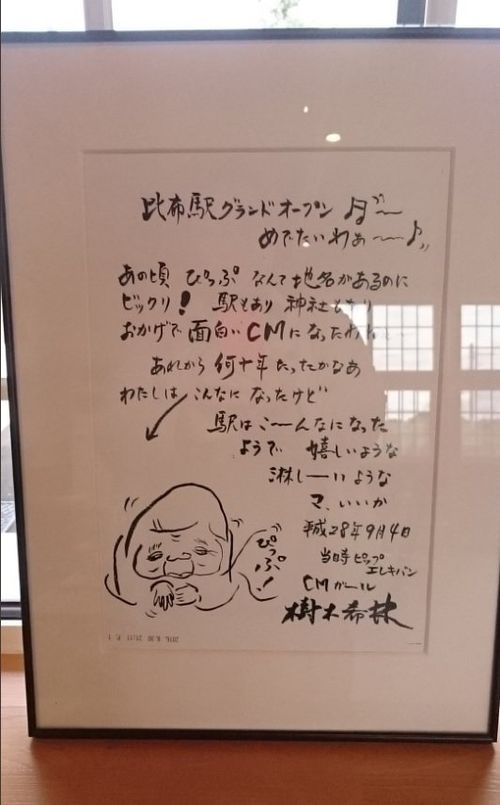 比布駅グランドオープン
めでたいわぁ〜〜♪
あの頃 ぴっぷ なんて地名があるのに
ビックリ! 駅もあり 神社もあり
おかげで 面白いCMになったわねぇ
あれから 何十年たったかなあ
わたしは こんなに なったけど
駅はこ〜んなになった
ようで 嬉しいような
淋し―いような
マ、いいか
平成28年9月4日
当時ピップ
エレキバン
CMガール
樹木希林
ぴっぷ!